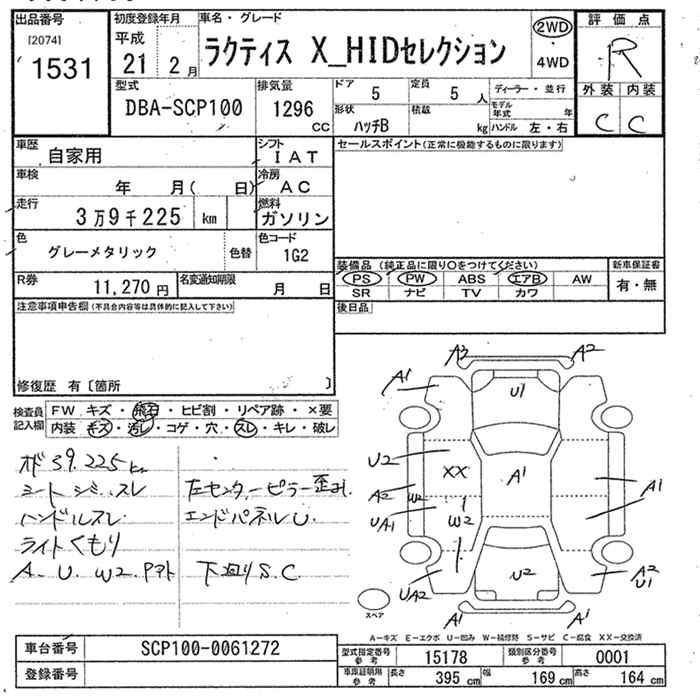 出品番号
[2074]
1531
初度登録年月
平成
21 2月
車名・グレード
ラクティス X_HIDセレクション
2WD
・
4WD
評価点
R
外装 内装
C C
型式
DBA-SCP100
排気量
1296
CC
ドア
5
定員
5 人
形状
ハッチB
積載
kg
ディーラー・並行
モデル年式 年
ハンドル 左・右
車歴
自家用
シフト
IAT
車検
年 月( 日)
冷房
AC
走行
3万9千225 km
燃料
ガソリン
色
グレーメタリック
色替
色コード
1G2
R券
11,270円
名変通知期限
月 日
セールスポイント(正常に機能するものに限ります)
装備品 (純正品に限り〇をつけてください)
PS PW ABS エアB AW
SR ナビ TV カワ
新車保証書
有・無
後日品
注意事項申告欄(不具合内容等は具体的に記入して下さい)
修復歴 有〔箇所 〕
検査員記入欄
FW キズ・飛石・ヒビ割・リペア跡・×要
内装 キズ・汚レ・コゲ・穴・スレ・キレ・破レ
オド 39.225km
シート シミ.スレ
ハンドルスレ
ライトくもり
A. U. W2.
左センターピラー歪ミ.
エンドパネルU.
下廻りS.C
A3 A2
A1
U1
U2
XX
A1
A2 W2
UA1
W2
A1
UA2
U2
A2
U1
A1 A1
スペア
A−キズ E−エクボ U−凹み W−補修跡 S−サビ C−腐食 XX−交換済
車台番号
SCP100-0061272
登録番号
型式指定番号
参考
15178
類別区分番号
参考
0001
車庫証明用
参考
長さ
395 cm
幅
169 cm
高さ
164 cm